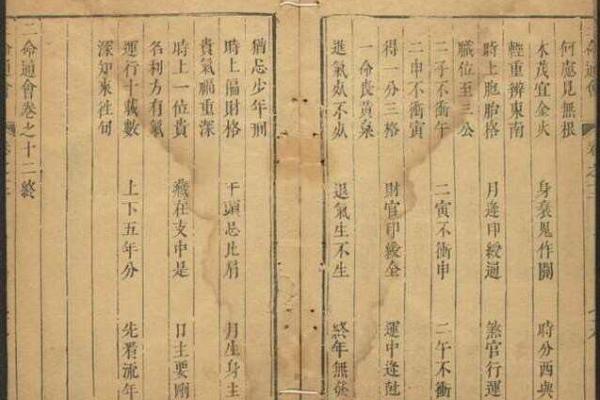 何處見無根
木茂宜金火 身衰鬼作關 時分西與
輕重辨東南
時上胞胎格 月逢印綬通 煞官行運
職位至三公
二子不衝午 二寅不衝申 二午不衝
二申不衝寅
得一分三格 財官印綬全 運中逢尅
一命喪黃泉
進氣死不死 退氣生不生 終年無發
猶忌少年刑
時上偏財格 干頭忌比肩 月生身主
貴氣福重深
時上一位貴 藏在支中是 日主要剛
名利方有氣
運行十載數 上下五年分 先看流年
深知來往旬
三命通會卷之十二終